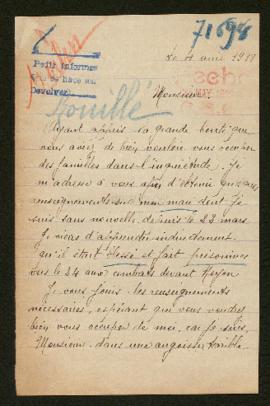 71694
Petit Informe
Devolver
Fouillé
Le 4 1918
Monsieur,
Ayant appris la grande bonté que
vous avez de bien vouloir vous occuper
des familles dans l'inquiétude. Je
m'adresse à vous afin d'obtenir quelques
renseignements sur mon mari dont je
suis sans nouvelle depuis le 22 mars.
Je viens d'apprendre indirectement
qu'il était blessé et fait prisonnier
vers le 24 aux combats devant Noyon.
Je vous joins les renseignements
nécessaires, espérant que vous voudrez
bien vous occuper de moi, car je suis,
Monsieur, dans une angoisse terrible.